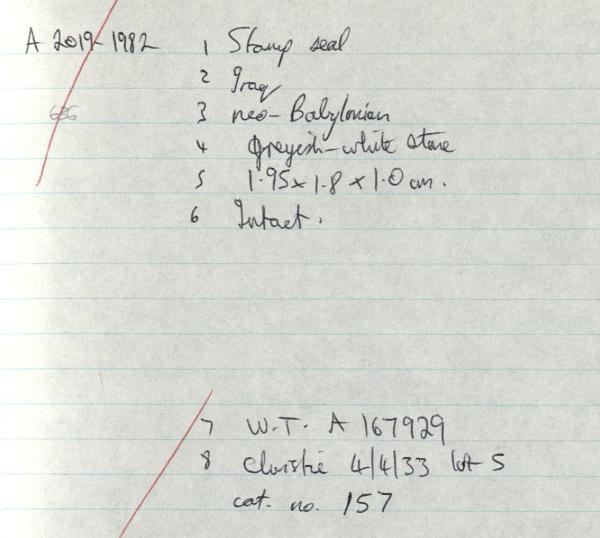 A 2019-1982 1 Stamp seal
2 Iraq
686 3 neo-Babylonian
4 Greyish-white stone
5 1.95 x 1.8 x 1.0 cm.
6 Intact.
7 W.T. A 167929
8 Christie 4/4/33 lot 5
cat. no. 157